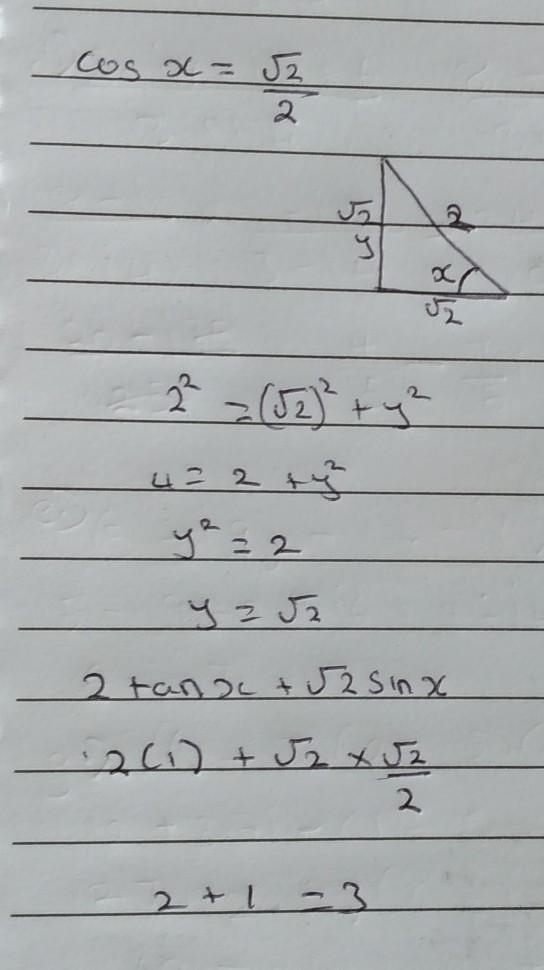 cos x = √2/2
√2
y
2
x
√2
2² = (√2)² + y²
4 = 2 + y²
y² = 2
y = √2
2 tan x + √2 sin x
2(1) + √2 × √2/2
2 + 1 = 3